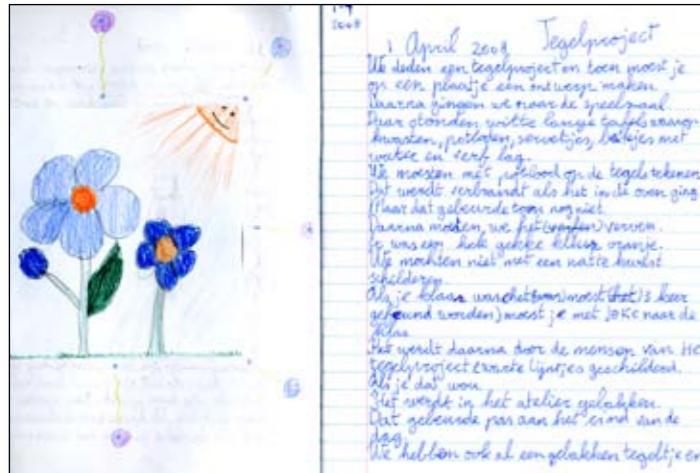 1-4
2008
1 April 2008 Tegelproject
We deden een tegelproject en toen moest je
op een plaatje een ontwerp maken.
Daarna gingen we naar de speelzaal.
Daar stonden witte lange tafels waarop
kwasten, potloden, servetjes, bekjes met
water en verf lag.
We moesten met potlood op de tegels tekenen
Dat werdt verbrandt als het in de oven ging
Maar dat gebeurde toen nog niet.
Daarna moesten we het verven.
Er was een hele gekke kleur oranje.
We mochten niet met een natte kwast
schilderen.
Als je klaar was het moest 3 keer
gekeurd worden) moest je met naar de
klas.
Het werdt daarna door de mensen van HET
tegelproject zwarte lijntjes geschilderd.
Als je dat wou.
Het werdt in het atelier gebakken.
Dat gebeurde pas aan het eind van de
dag.
We hebben ook al een gebakken tegeltje